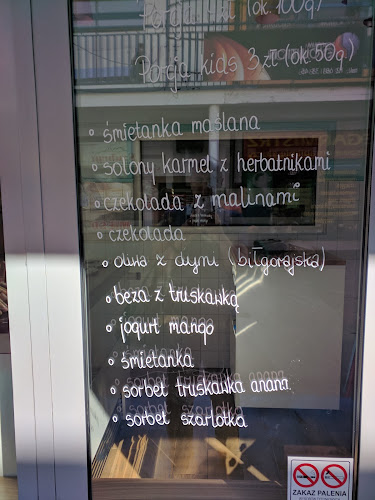 (ok. 100g)
Porcja kids 3zł (ok. 50g)
◦ śmietanka maślana
◦ solony karmel z herbatnikami
◦ czekolada z malinami
◦ czekolada
◦ oliwa z dyni (biłgorajska)
◦ beza z truskawką
◦ jogurt mango
◦ śmietanka
◦ sorbet truskawka ananas
◦ sorbet szarlotka
ZAKAZ PALENIA